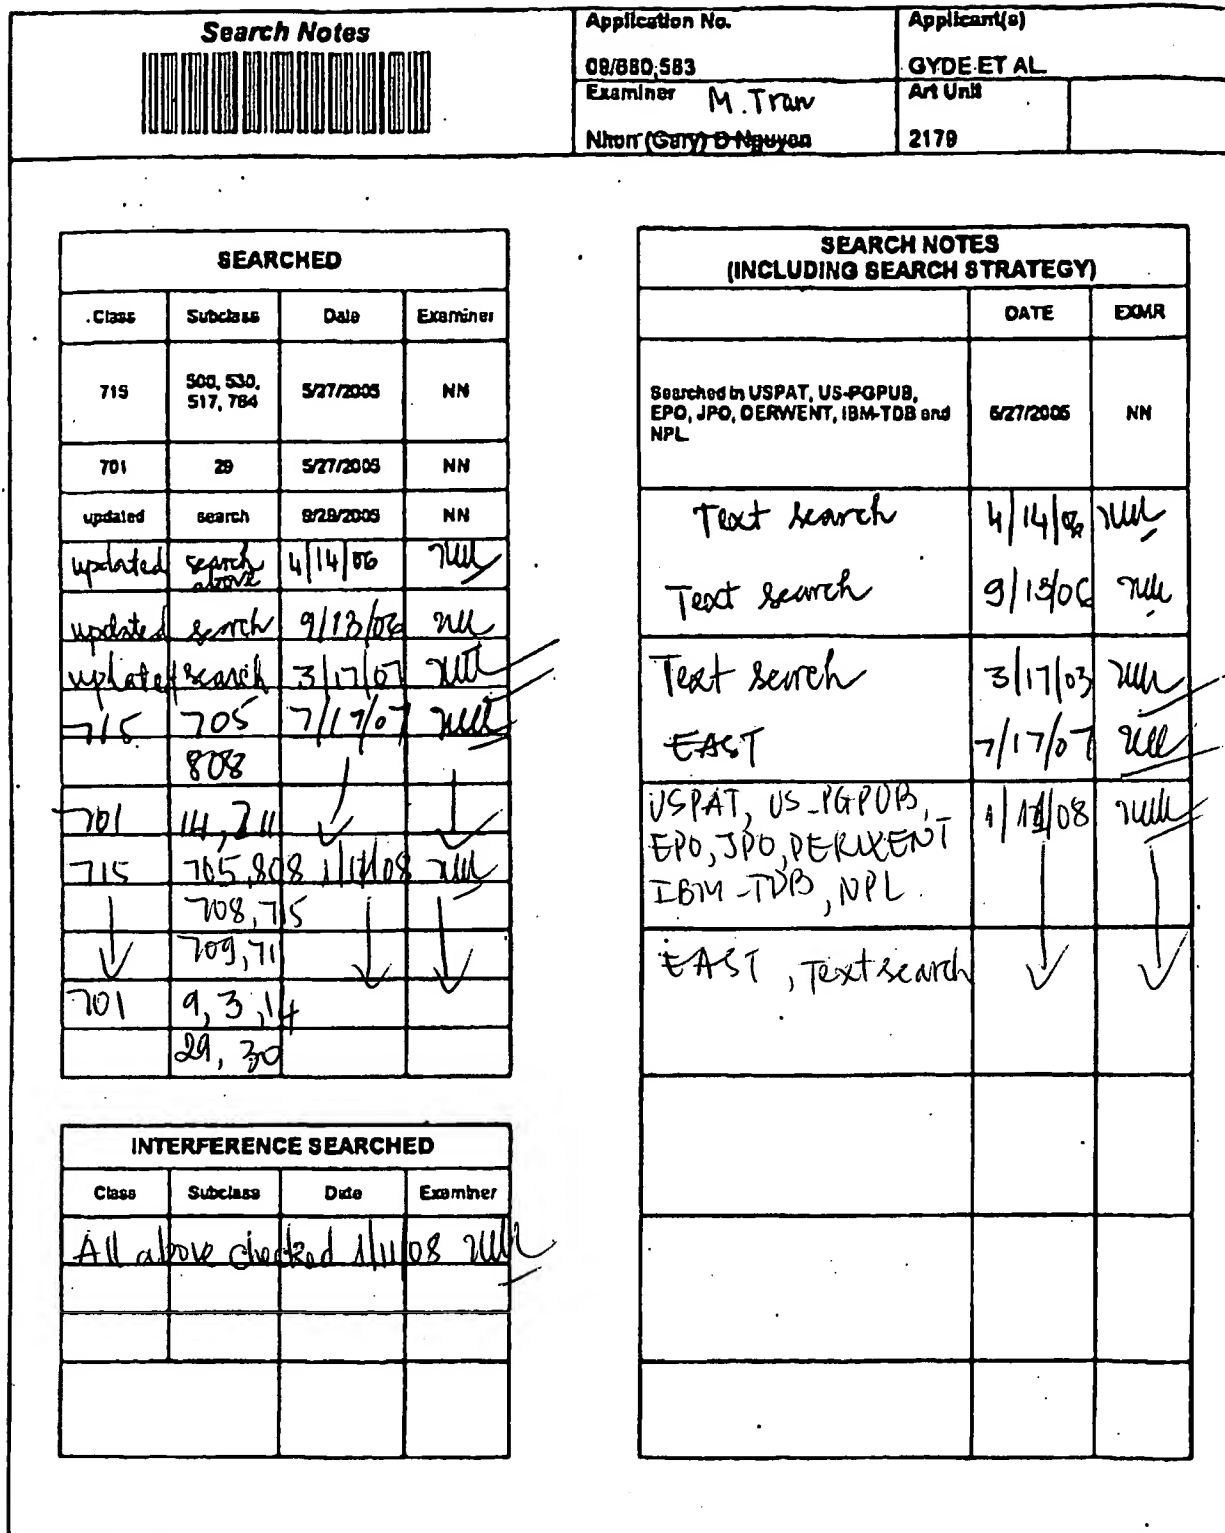 Search Notes
Application No.
Applicant(s)
09/680,583
GYDE ET AL.
Examiner
M. Tran
Art Unit
Nhon (Gary) D Nguyen
2179
SEARCHED
Class Subclass Date Examiner
715 500, 530, 517, 764 5/27/2005 NN
701 29 5/27/2005 NN
updated search 9/29/2005 NN
updated search above 4/14/06
updated search 9/13/06
updated search 3/17/07
715 705 7/17/07
808
701 14, 211
715 705, 808 1/11/08
708, 715
709, 711
701 9, 3, 14
29, 30
INTERFERENCE SEARCHED
Class Subclass Date Examiner
All above checked 1/11/08
SEARCH NOTES
(INCLUDING SEARCH STRATEGY)
DATE EXMR
Searched in USPAT, US-PGPUB,
EPO, JPO, DERWENT, IBM-TDB and 5/27/2005 NN
NPL
Text search 4/14/06
Text search 9/13/06
Text search 3/17/03
EAST 7/17/07
USPAT, US-PGPUB, 1/11/08
EPO, JPO, DERWENT
IBM-TDB, NPL
EAST, Text search